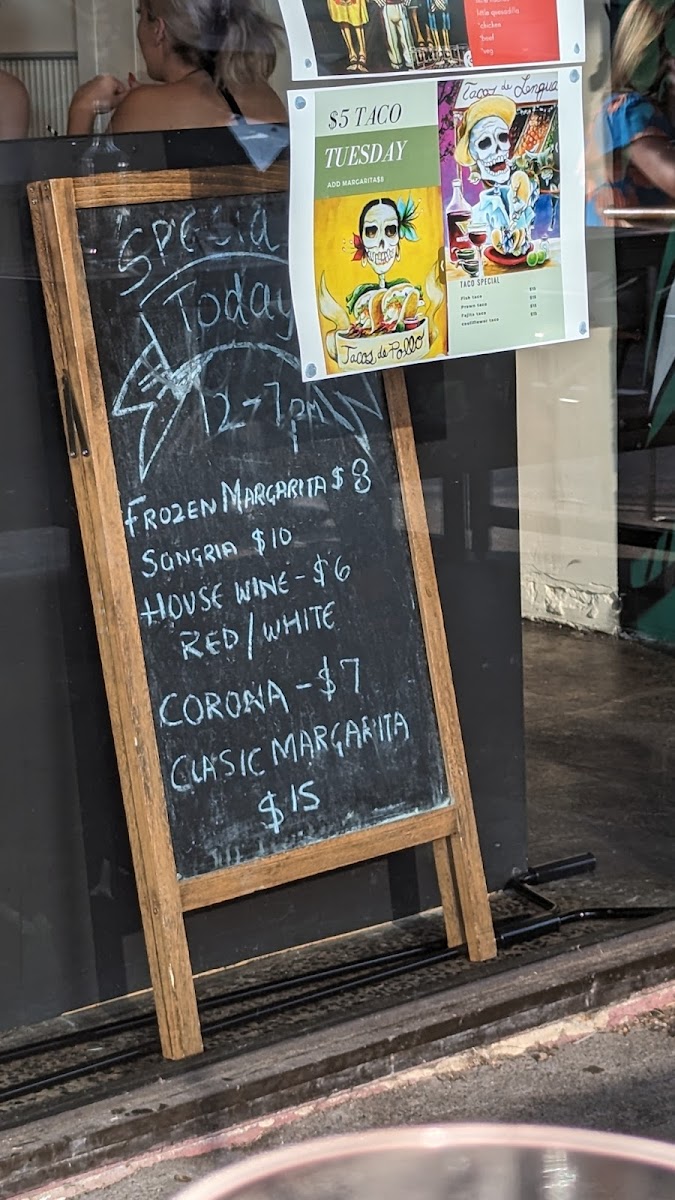 little quesadilla
*chicken
*beef
*veg
$5 TACO
TUESDAY
ADD MARGARITA$8
Tacos de Pollo
Tacos de Lengua
TACO SPECIAL
Fish taco
Prawn taco
Fajita taco
cauliflower taco
Specia
Today
12-7pm
FROZEN MARGARITA $8
SONGRIA $10
HOUSE WINE - $6
RED/WHITE
CORONA - $7
CLASIC MARGARITA
$15